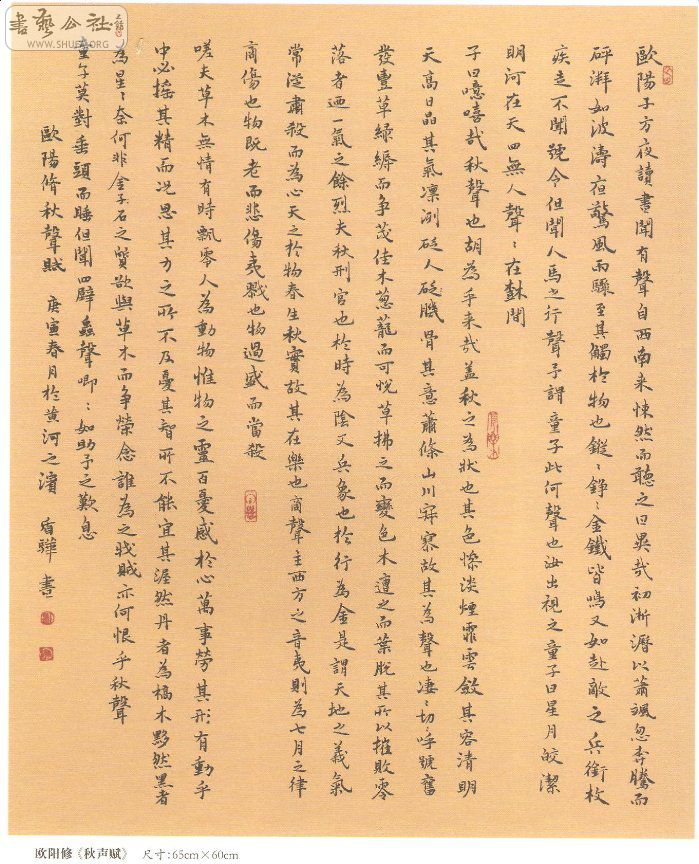 書藝公社
www.SHUFA.ORG
歐陽子方夜讀書聞有聲自西南来悚然而聽之曰異哉初淅瀝以蕭颯忽奔騰而
砰湃如波濤夜驚風雨驟至其觸於物也鏦〻錚〻金鐵皆鳴又如赴敵之兵銜枚
疾走不聞號令但聞人馬之行聲予謂童子此何聲也汝出視之童子曰星月皎潔
明河在天四無人聲〻在間
子曰噫嘻哉秋聲也胡為乎来哉盖秋之為狀也其色惨淡煙霏雲斂其容清明
天高日晶其氣凛冽砭人肌骨其意蕭條山川寂寥故其為聲也凄〻切〻呼號奮
發豐草緑縟而争茂佳木葱蘢而可悦草拂之而變色木遭之而葉脱其所以摧敗零
落者迺一氣之餘烈夫秋刑官也於時為陰又兵象也於行為金是謂天地之義氣
常從肅殺而為心天之於物春生秋實故其在樂也商聲主西方之音夷則為七月之律
商傷也物既老而悲傷夷戮也物過盛而當殺
嗟夫草木無情有時飄零人為動物惟物之靈百憂感於心萬事勞其形有動乎
中必摇其精而况思其力之所不及憂其智所不能宜其渥然丹者為槁木黟然黑者
為星〻奈何非金石之質欲與草木而争榮念誰為之戕賊亦何恨乎秋聲
童子莫對垂頭而睡但聞四壁蟲聲唧〻如助予之歎息
歐陽脩秋聲賦 庚寅春月於黄河之濱 盾驊書
欧阳修《秋声赋》 尺寸:65cm×60cm